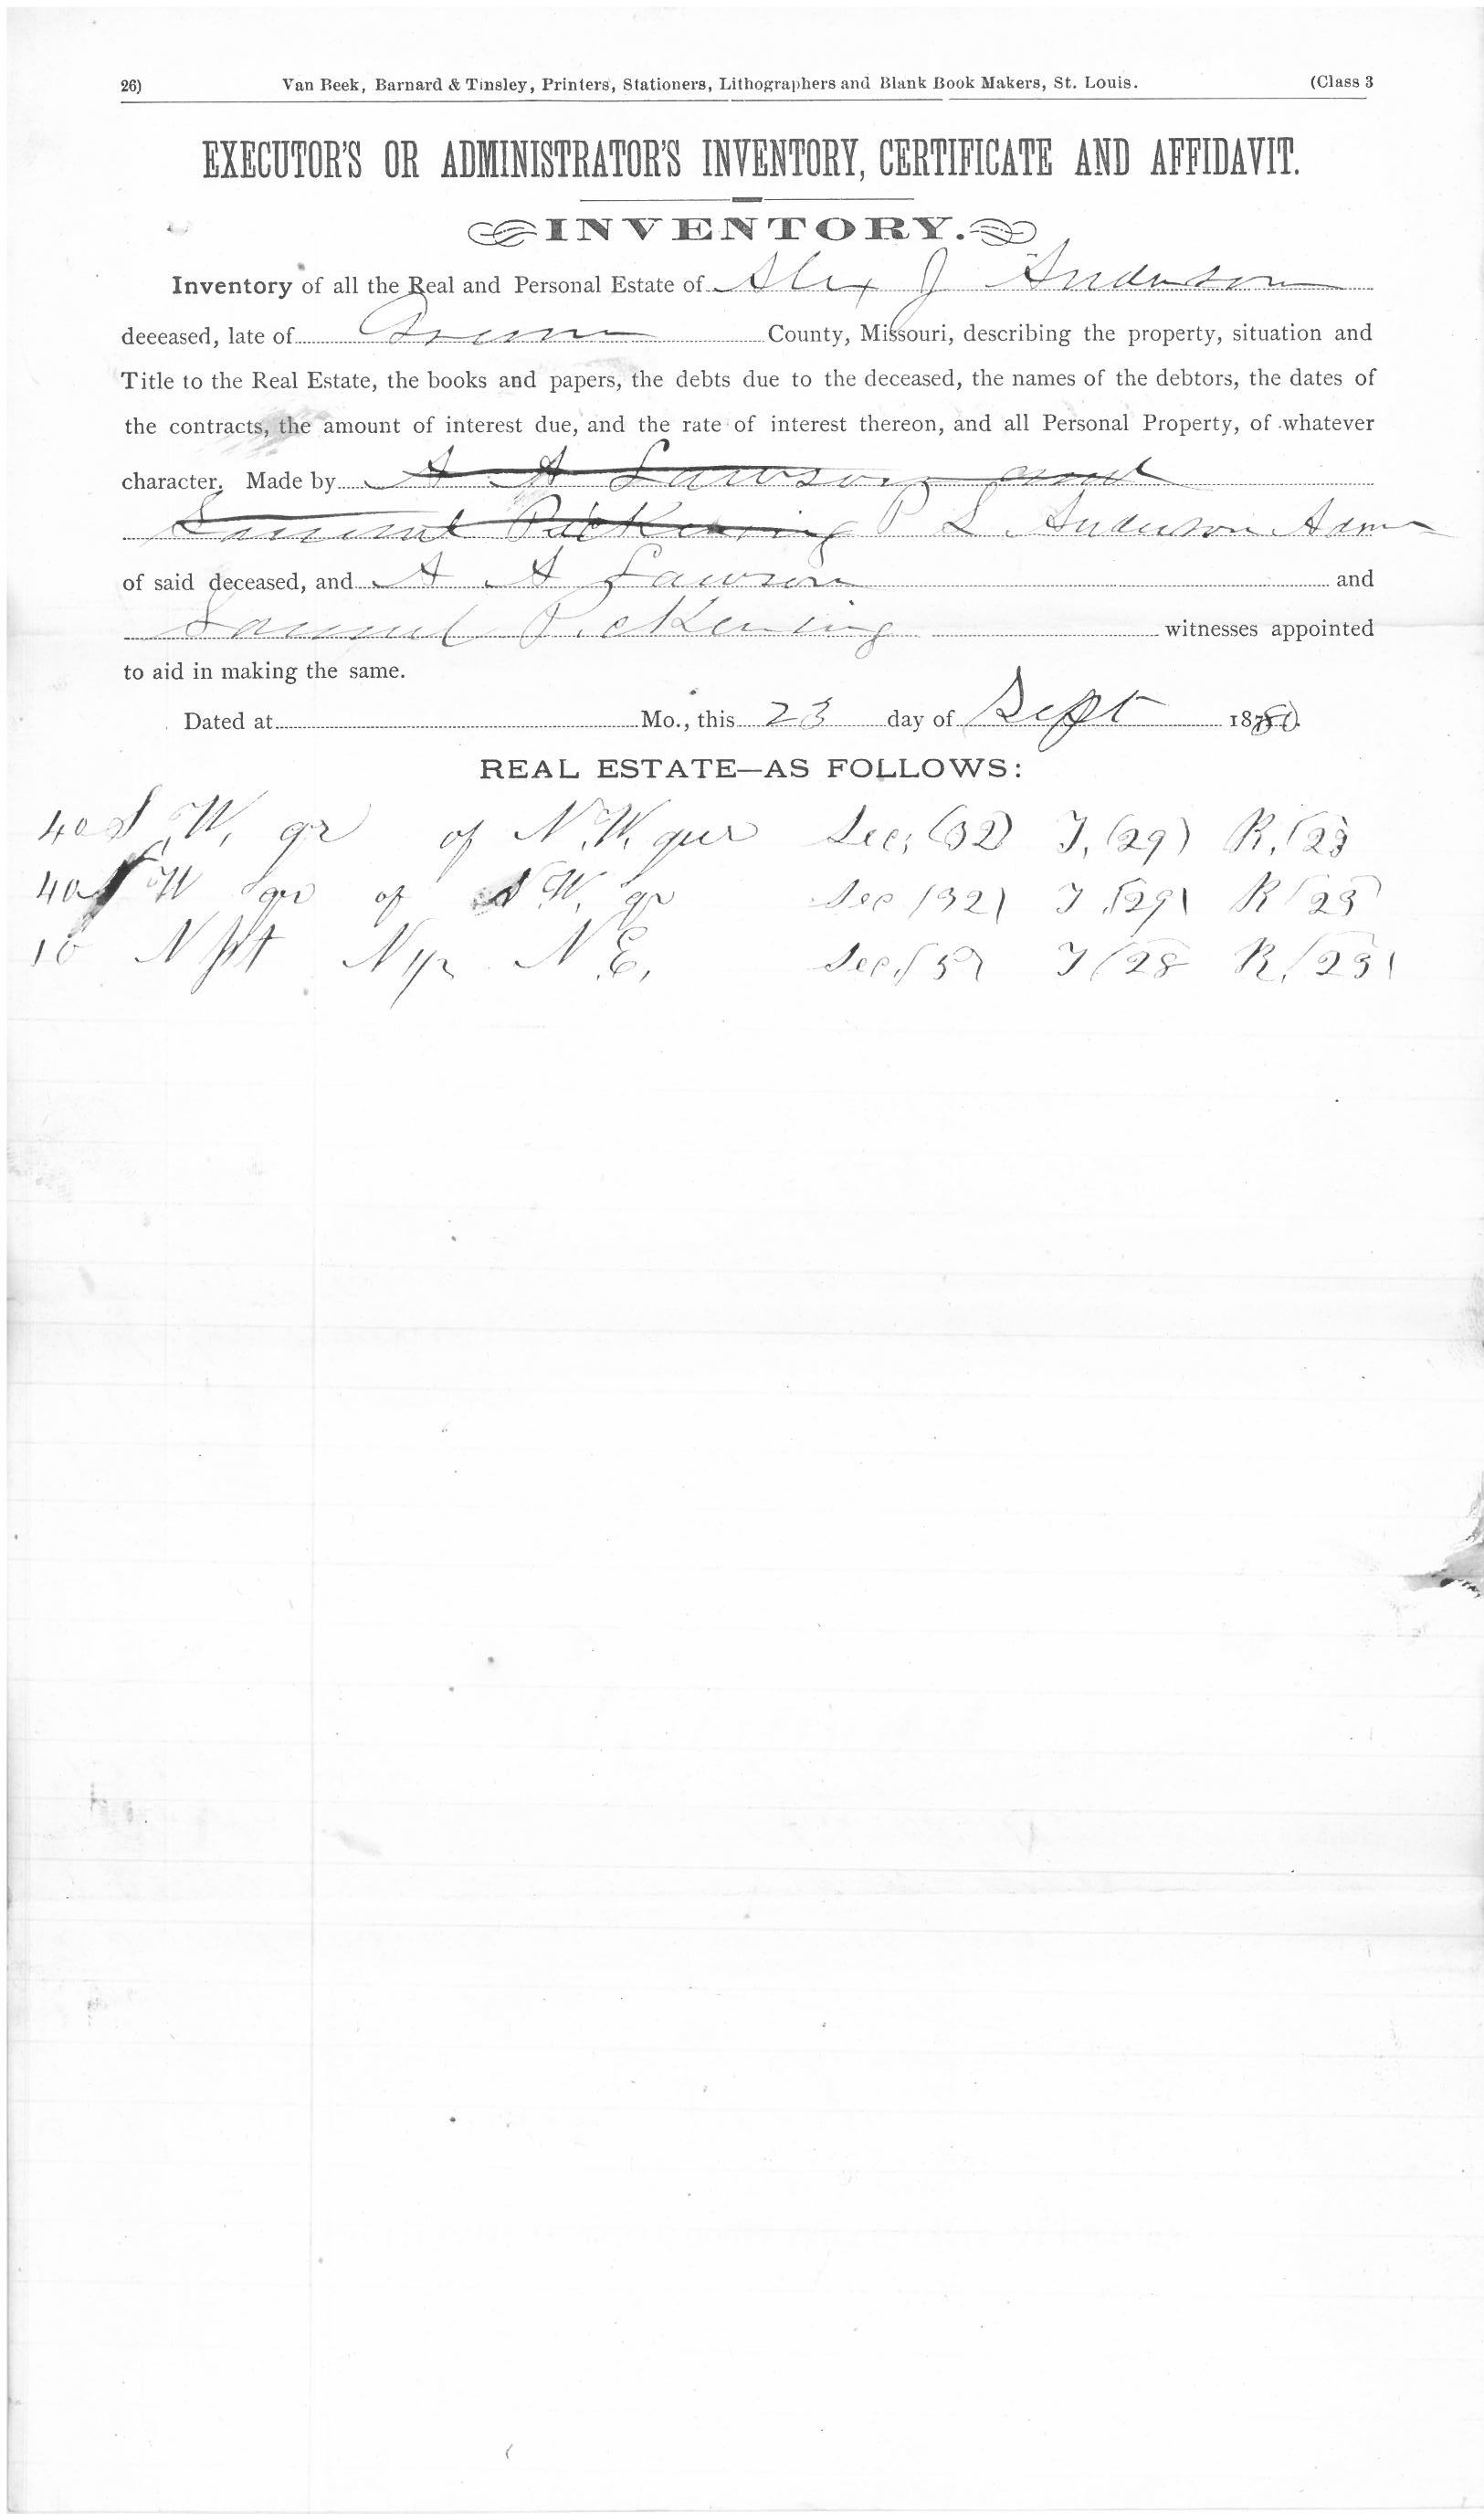 26) Van Beek, Barnard & Tinsley, Printers, Stationers, Lithographers and Blank Book Makers, St. Louis. (Class 3
EXECUTOR'S OR ADMINISTRATOR'S INVENTORY, CERTIFICATE AND AFFIDAVIT.
INVENTORY.
Inventory of all the Real and Personal Estate of Alex J Anderson
deceased, late of Greene County, Missouri, describing the property, situation and
Title to the Real Estate, the books and papers, the debts due to the deceased, the names of the debtors, the dates of
the contracts, the amount of interest due, and the rate of interest thereon, and all Personal Property, of whatever
character. Made by A A Lawson and
Samuel Pickering P L Anderson Adm
of said deceased, and A A Lawson and
Samuel Pickering witnesses appointed
to aid in making the same.
Dated at Mo., this 23 day of Sept 1880.
REAL ESTATE—AS FOLLOWS:
40 S.W. qr of N.W. qur Sec; (32) T, (29) R, (23
40 W qr of S W. qr Sec (32) T (29) R (23)
10 N pt N E, Sec, T (28 R, (23)